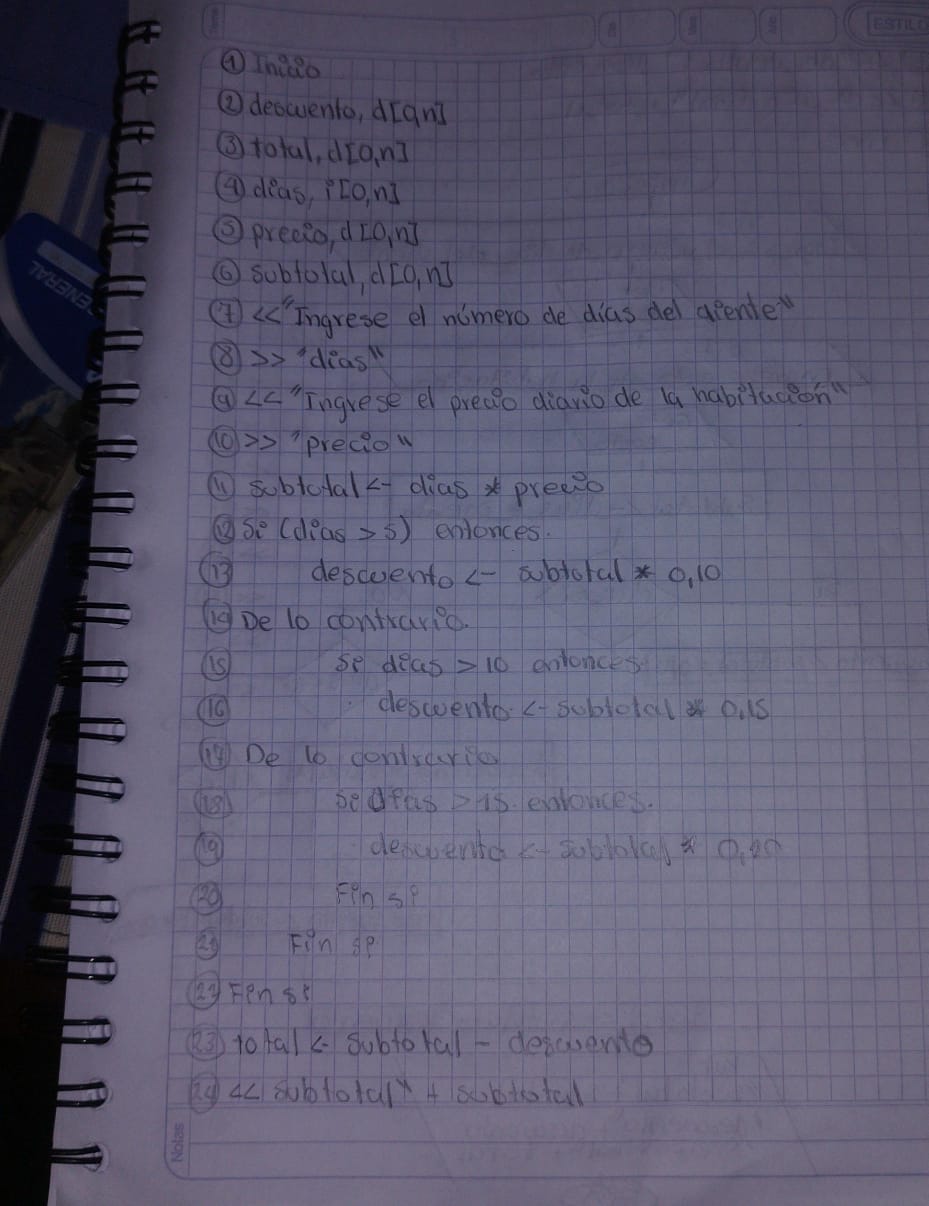 ESTILO
① Inicio
② descuento, d[0,n]
③ total, d[0,n]
④ dias, i[0,n]
⑤ precio, d[0,n]
⑥ subtotal, d[0,n]
⑦ << "Ingrese el número de días del cliente"
⑧ >> "dias"
⑨ << "Ingrese el precio diario de la habitación"
⑩ >> "precio"
⑪ subtotal <- dias * precio
⑫ Si (dias > 5) entonces.
⑬ descuento <- subtotal * 0,10
⑭ De lo contrario
⑮ si dias > 10 entonces
⑯ descuento <- subtotal * 0,15
⑰ De lo contrario
⑱ si dias > 15 entonces.
⑲ descuento <- subtotal * 0,20
⑳ Fin si
㉑ Fin si
㉒ Fin si
㉓ total <- subtotal - descuento
㉔ << subtotal" + subtotal
Notas
GENERAL